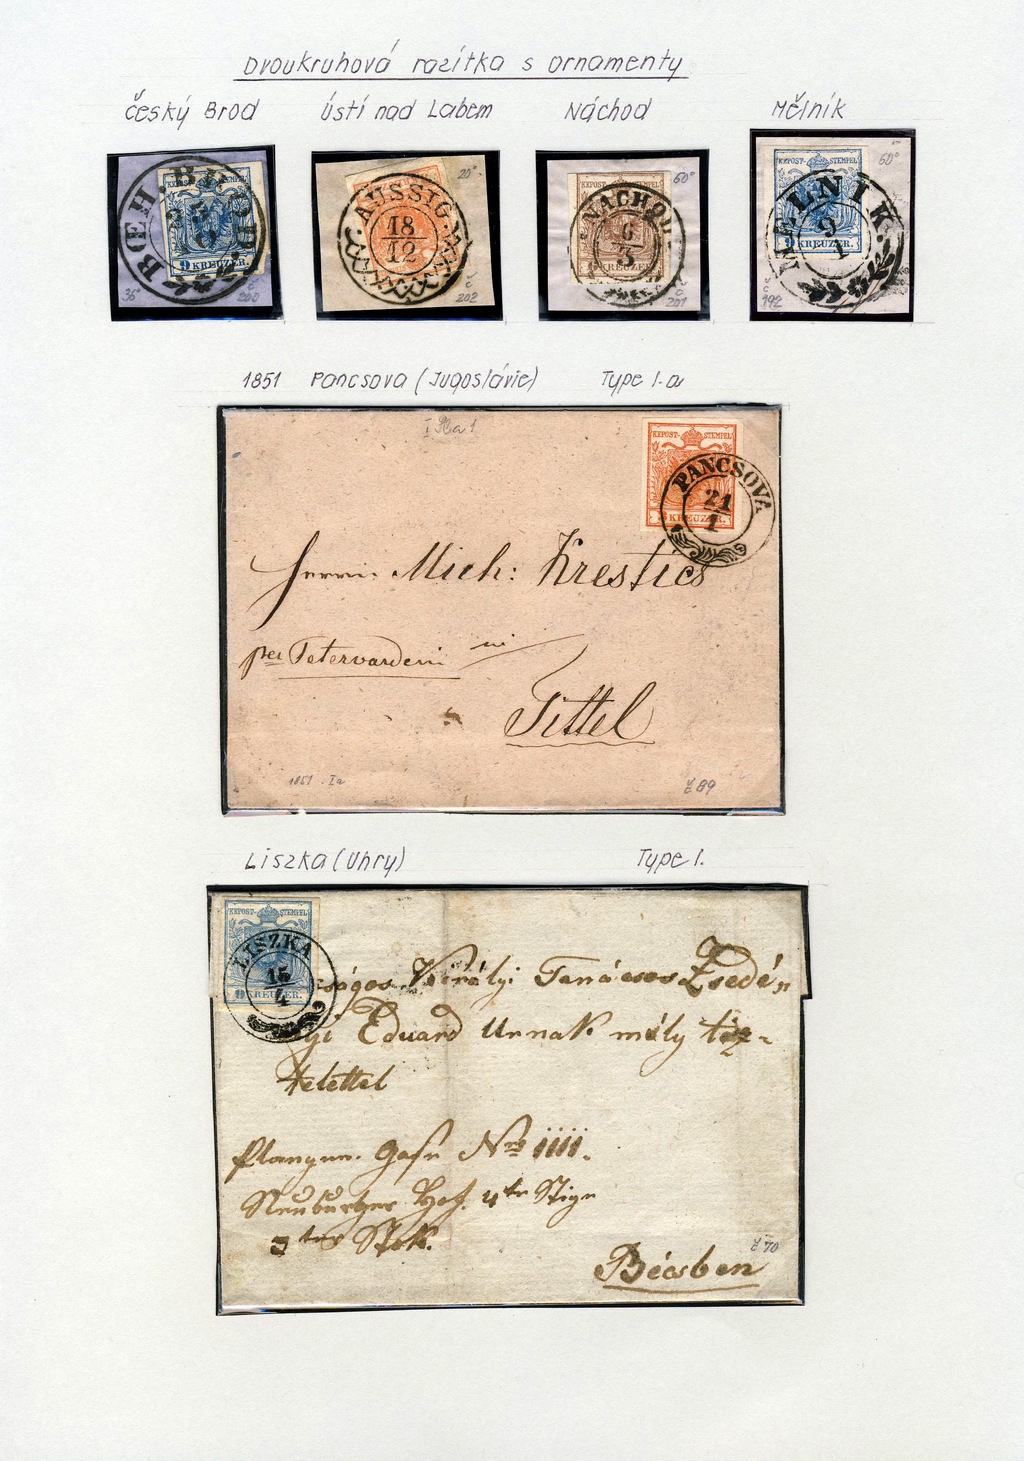 Dvoukruhová razítka s ornamenty
Český Brod Ústí nad Labem Náchod Mělník
BŒH.BROD
KEPOST-STEMPEL
9 KREUZER.
35° č 200
AUSSIG
18
12
20° č 202
KEPOST-STEMPEL
NACHOD
6
3
6 KREUZER.
60° č 201
KEPOST-STEMPEL
MELNIK
9
1
9 KREUZER.
60° č 192
1851 Pancsova (Jugoslávie) Type I.a
KEPOST-STEMPEL
PANCSOVA
21
1
KREUZER.
Herrn Mich: Krestics
per Petervardein in
Tittel
1851 Ia č 89
Liszka (Uhry) Type I.
KEPOST-STEMPEL
LISZKA
15
4
9 KREUZER.
ságos Királyi Tanácsos Zsedén
yi Eduard Urnak mély tisz=
telettel
No iiii.
Neuburger Hof. 4te Stige
3ter Stok.
Bécsben
č 70